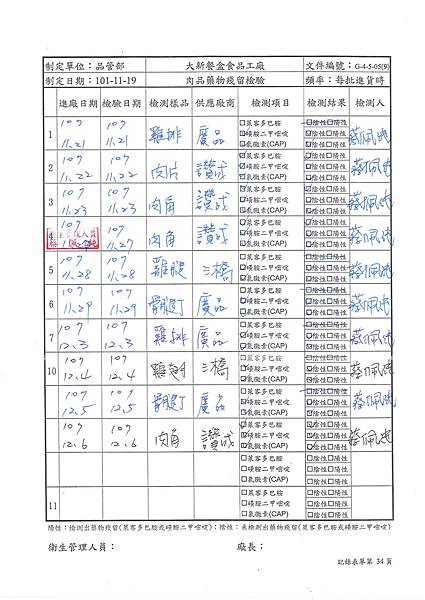 制定單位：品管部 大新餐盒食品工廠 文件編號：G-4-5-05(9)
制定日期：101-11-19 肉品藥物殘留檢驗 頻率：每批進貨時
進廠日期 檢驗日期 檢測樣品 供應廠商 檢測項目 檢測結果 檢測人
1 107 11.21 107 11.21 雞排 廣品 萊客多巴胺 陰性 陽性 蔡佩純
磺胺二甲嘧啶 陰性 陽性
氯黴素(CAP) 陰性 陽性
2 107 11.22 107 11.22 肉片 讚成 萊客多巴胺 陰性 陽性 蔡佩純
磺胺二甲嘧啶 陰性 陽性
氯黴素(CAP) 陰性 陽性
3 107 11.23 107 11.23 肉角 讚成 萊客多巴胺 陰性 陽性 蔡佩純
磺胺二甲嘧啶 陰性 陽性
氯黴素(CAP) 陰性 陽性
4 107 107 11.27 肉角 讚成 萊客多巴胺 陰性 陽性 蔡佩純
磺胺二甲嘧啶 陰性 陽性
氯黴素(CAP) 陰性 陽性
5 107 11.28 107 11.28 雞腿 三橋 萊客多巴胺 陰性 陽性 蔡佩純
磺胺二甲嘧啶 陰性 陽性
氯黴素(CAP) 陰性 陽性
6 107 11.29 107 11.29 廣品 萊客多巴胺 陰性 陽性 蔡佩純
磺胺二甲嘧啶 陰性 陽性
氯黴素(CAP) 陰性 陽性
7 107 12.3 107 12.3 雞排 廣品 萊客多巴胺 陰性 陽性 蔡佩純
磺胺二甲嘧啶 陰性 陽性
氯黴素(CAP) 陰性 陽性
10 107 12.4 107 12.4 雞翅 三橋 萊客多巴胺 陰性 陽性 蔡佩純
磺胺二甲嘧啶 陰性 陽性
氯黴素(CAP) 陰性 陽性
107 12.5 107 12.5 廣品 萊客多巴胺 陰性 陽性 蔡佩純
磺胺二甲嘧啶 陰性 陽性
氯黴素(CAP) 陰性 陽性
107 12.6 107 12.6 肉角 讚成 萊客多巴胺 陰性 陽性 蔡佩純
磺胺二甲嘧啶 陰性 陽性
氯黴素(CAP) 陰性 陽性
萊客多巴胺 陰性 陽性
磺胺二甲嘧啶 陰性 陽性
氯黴素(CAP) 陰性 陽性
11 萊客多巴胺 陰性 陽性
磺胺二甲嘧啶 陰性 陽性
氯黴素(CAP) 陰性 陽性
陽性：檢測出藥物殘留(萊客多巴胺或磺胺二甲嘧啶)；陰性：未檢測出藥物殘留(萊客多巴胺或磺胺二甲嘧啶)
衛生管理人員： 廠長：
記錄表單第 34 頁